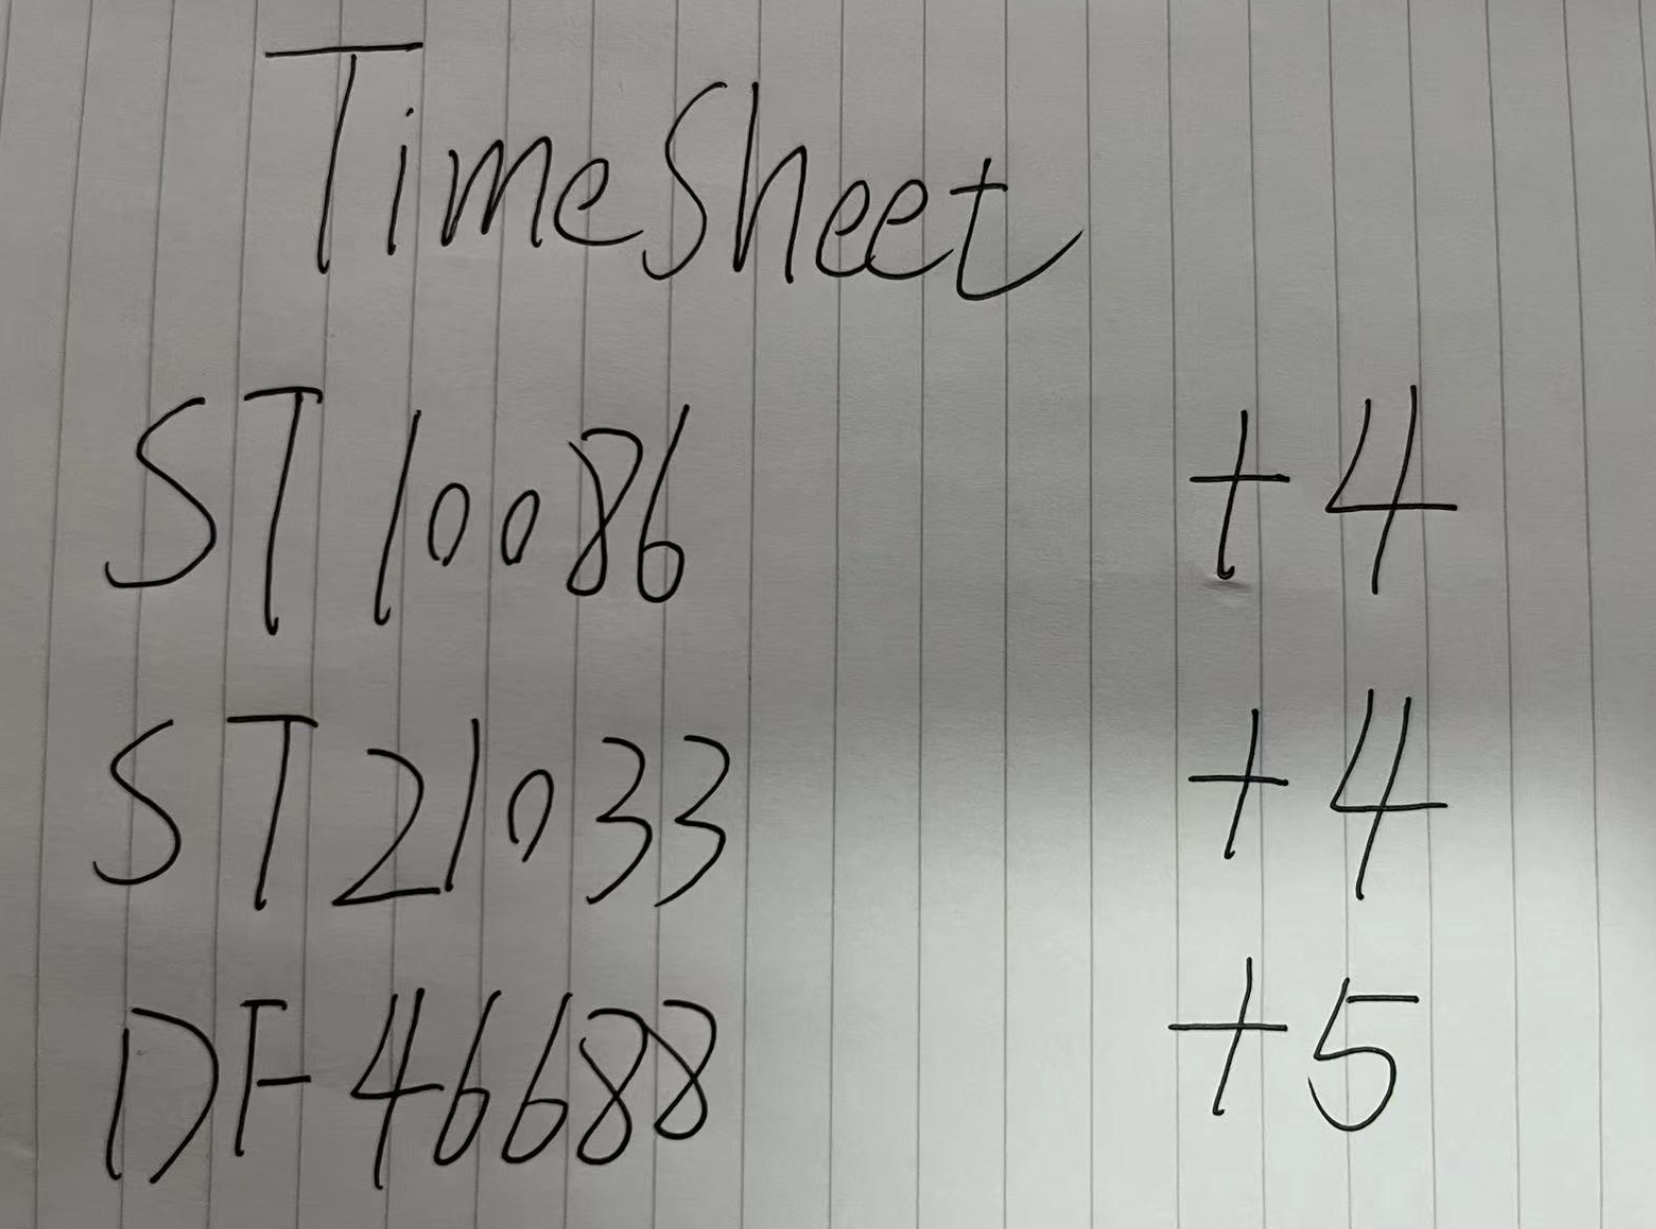 TimeSheet
ST10086 +4
ST21033 +4
DF46688 +5